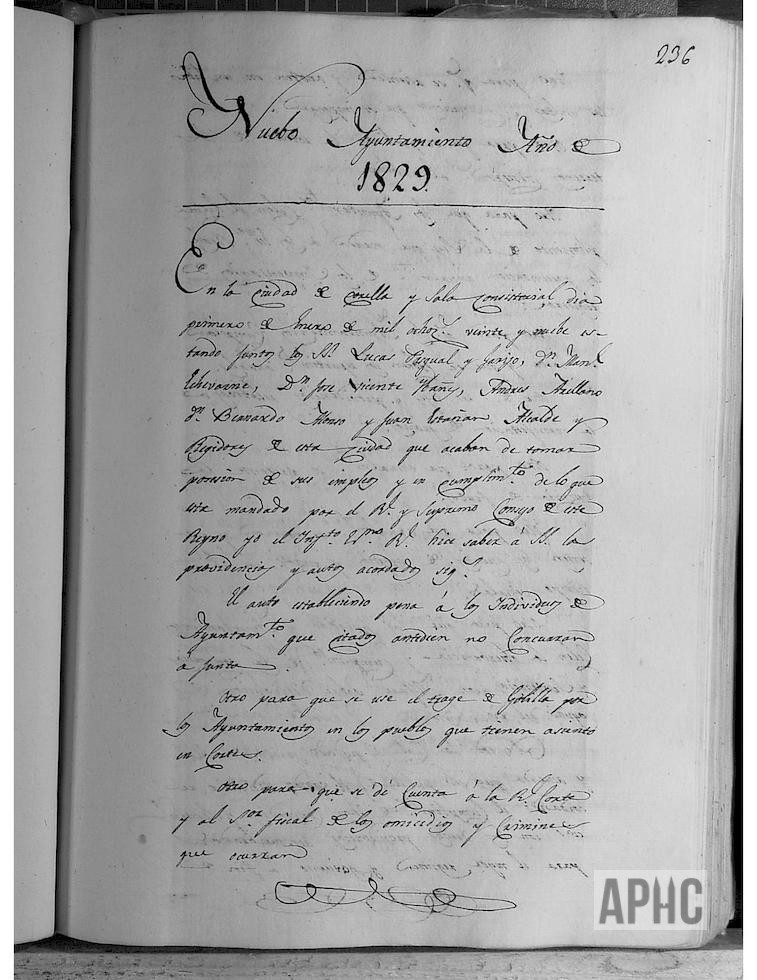 236
Nuebo Ayuntamiento Año de
1829.
En la Ciudad de Corella y Sala Consistorial, dia
primero de Enero de mil, ochoz.s veinte y nuebe es-
tando juntos los SS. Lucas Pasqual y Garijo, D.n Man.l
Echevarne, D.n Jose Vicente Ybañes, Andres Arellano
D.n Bernardo Alonso y Juan Estañan Alcalde y
Regidores de esta Ciudad que acaban de tomar
posesion de sus impleos y en cumplim.to de lo que
esta mandado por el R.l y Supremo Consejo de este
Reyno yo el Inf.to Es.no R.l hice saber á SS. las
providencias y autos acordados sig.s
El auto estableciendo pena á los Individuos de
Ayuntam.to que citados antedien no Concurran
á junta.
Otro para que se use el trage de Golilla por
los Ayuntamientos en los pueblos que tienen asiento
en Cortes.
Otro para que se dé Cuenta á la R.l Corte
y al S.or fiscal de los omicidios y Crimines
que ocurran
APHC